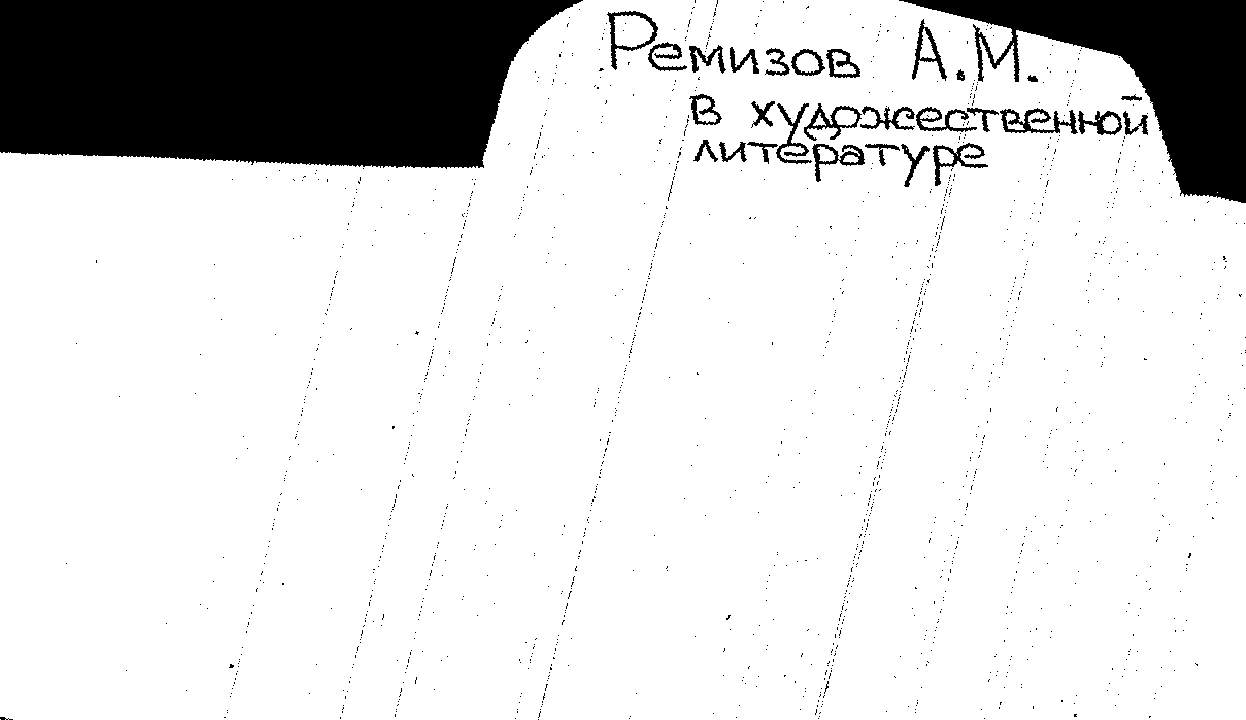 Ремизов А.М.
в художественной
литературе